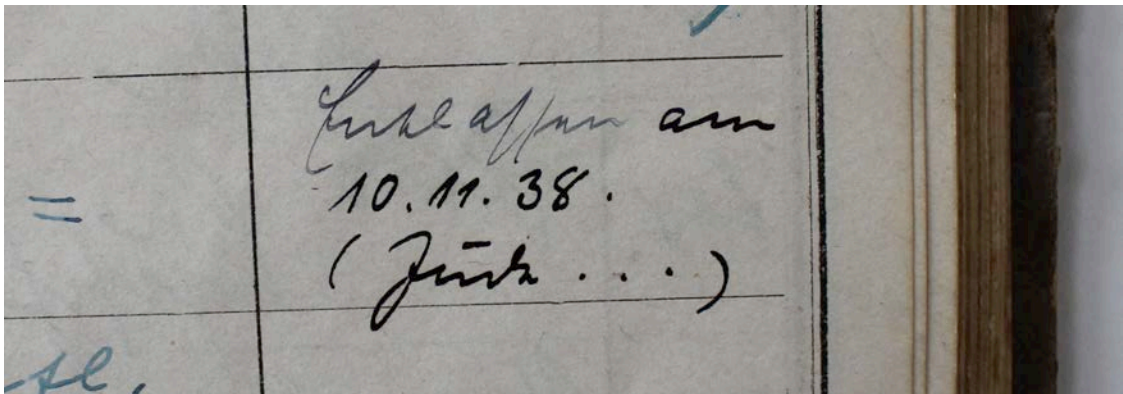 Entlassen am
=
10.11.38.
(Jude . . .)
tl.